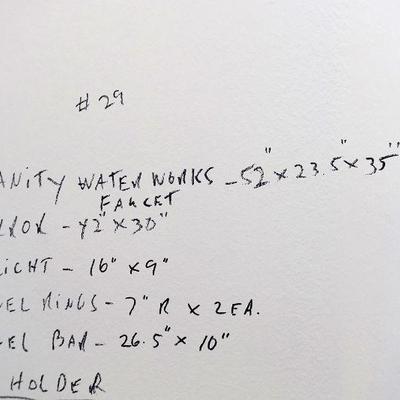 # 29
ANITY WATER WORKS - 52" x 23.5" x 35"
FAUCET
RROR - 42" x 30"
LIGHT - 16" x 9"
EL RINGS - 7" R x 2EA.
EL BAR - 26.5" x 10"
HOLDER